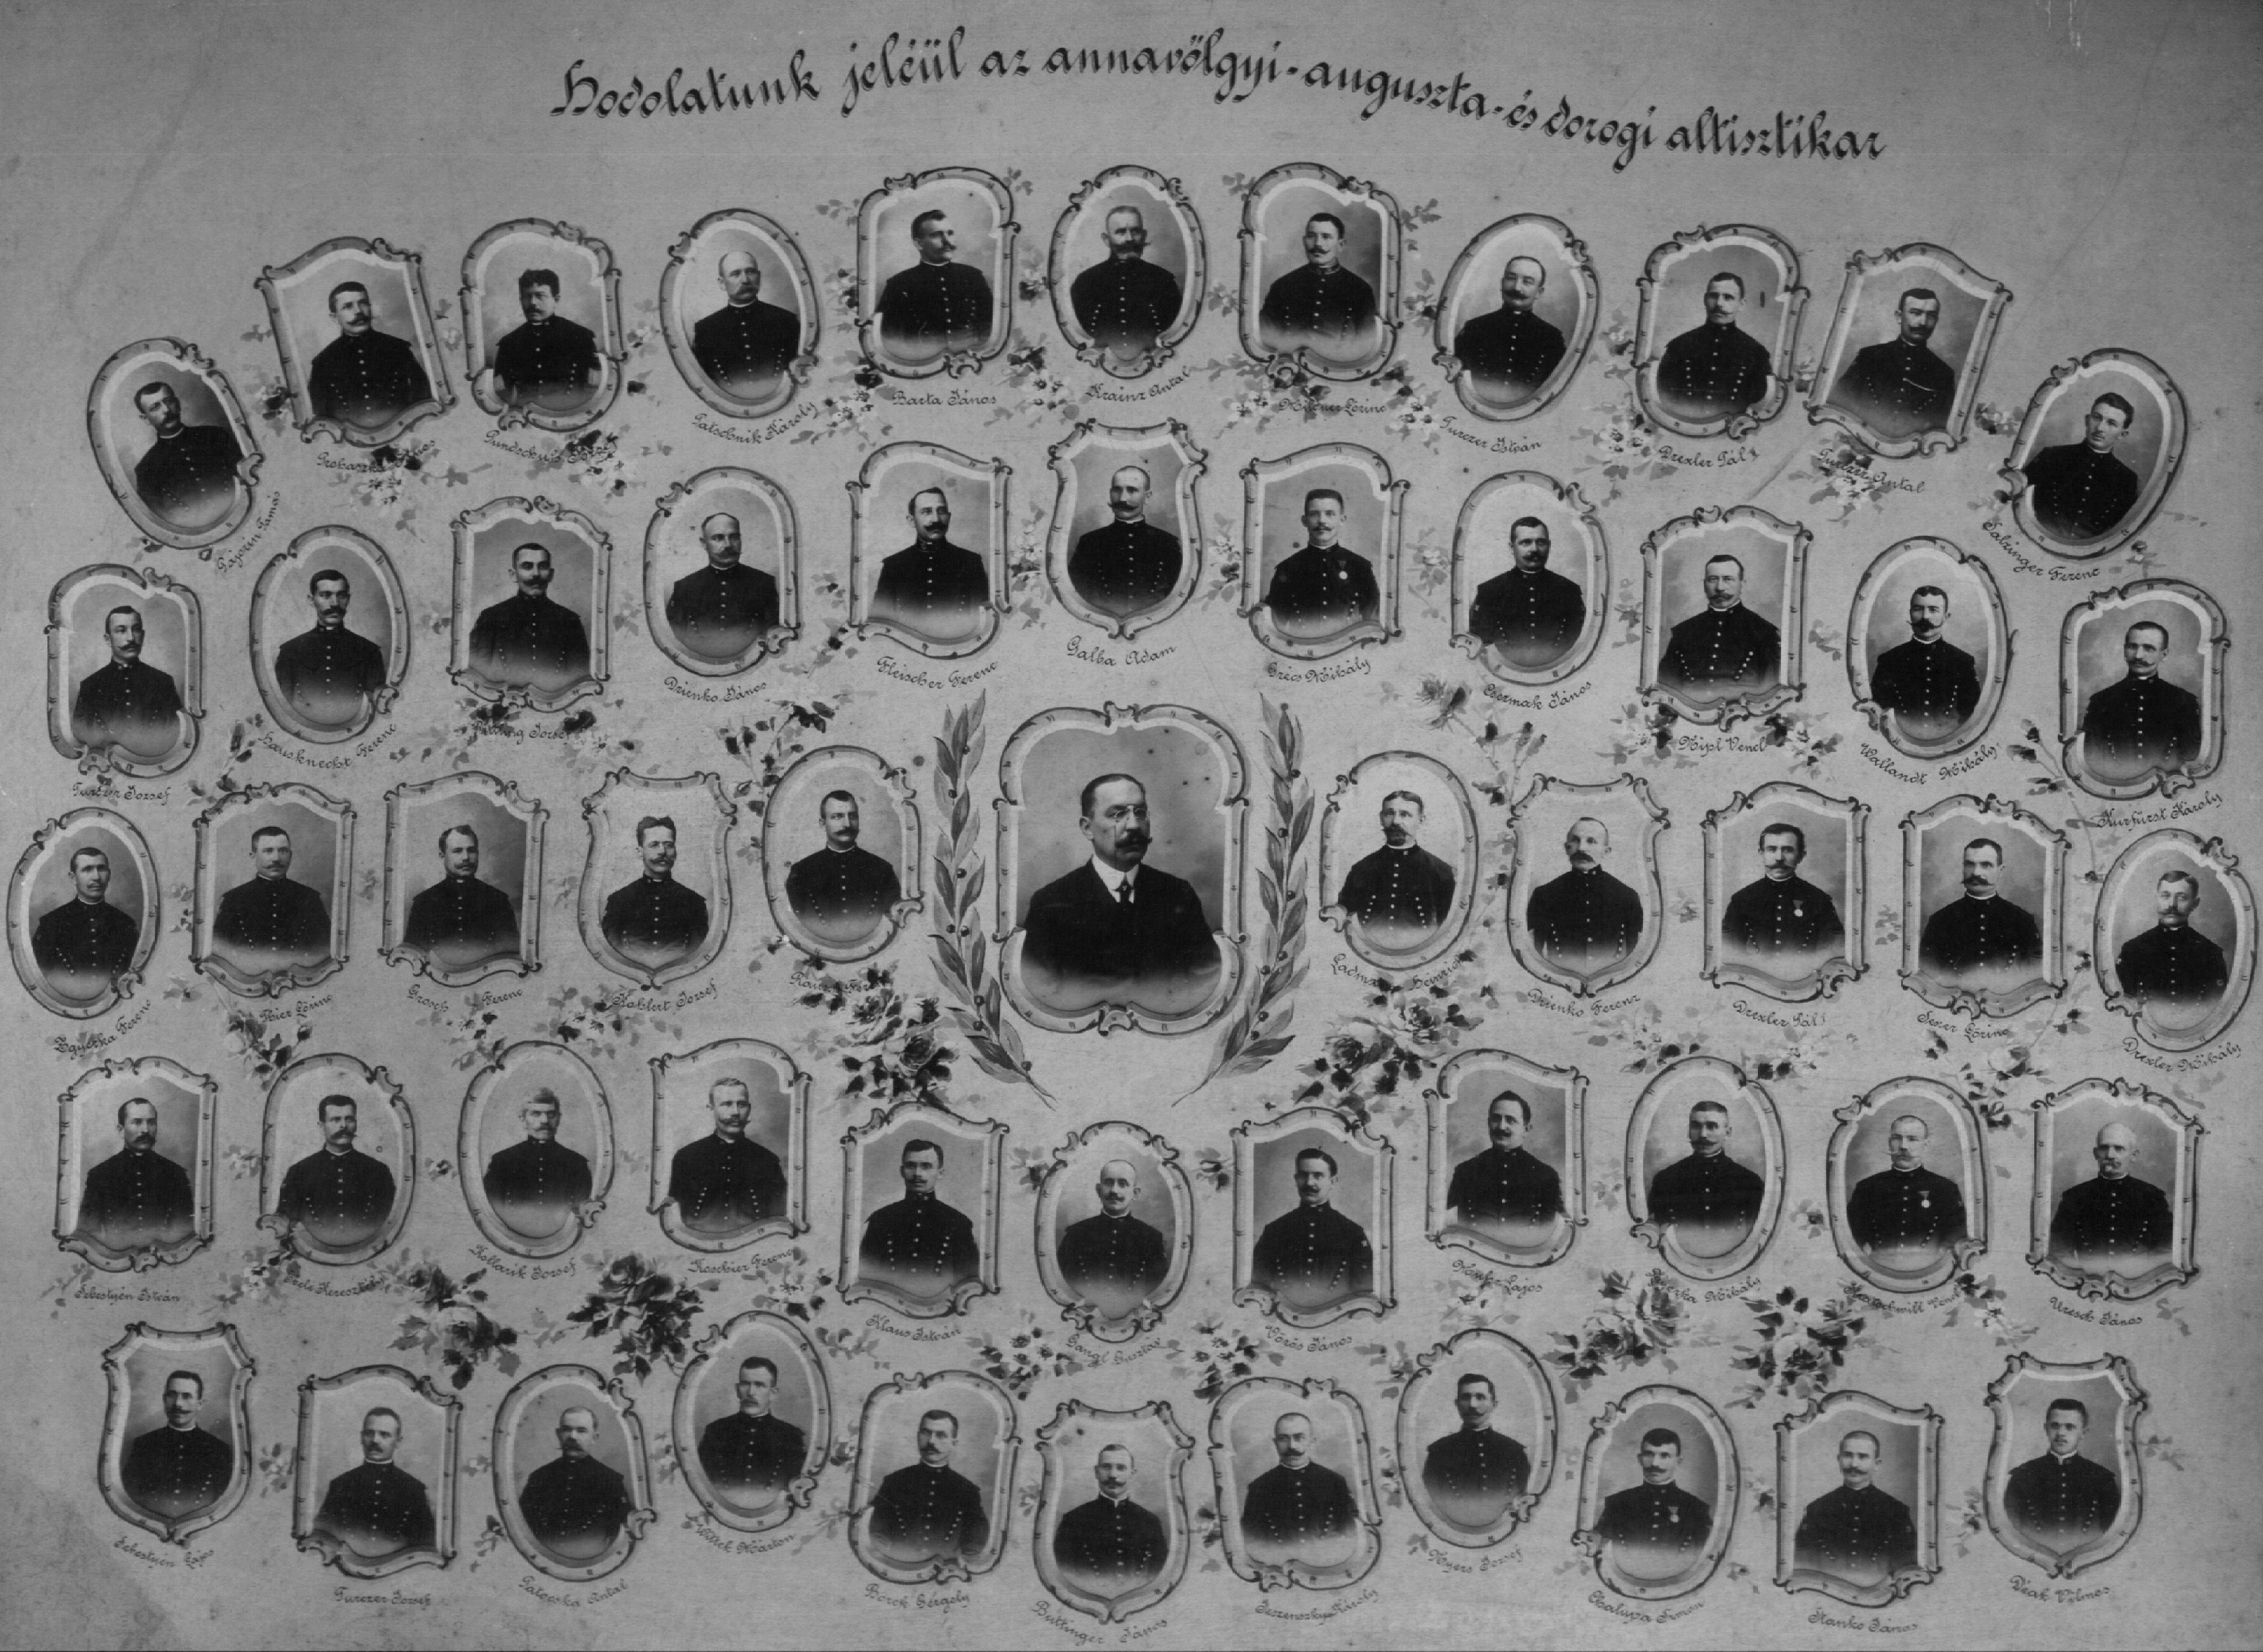 Hodolatunk jeléül az annavölgyi-auguszta-és dorogi altisztikar
Pajorin Tamás
János
Patschnik Károly
Barta János
Krainz Antal
Lőrinc
Turczer István
Drexler Pál
Turczer Antal
Salzinger Ferenc
József
Hausknecht Ferenc
József
Drienko János
Fleischer Ferenc
Galba Adam
Mihály
Csermak János
Nipl Vencl
Wallandt Mihály
Kurfürst Károly
Ferenc
Rier Lőrinc
Grosch Ferenc
Kahlert József
Heinrich
Drienko Ferenc
Drexler Pál
Lőrinc
Drexler Mihály
Sebestyén István
Kollarik József
Koschier Ferenc
Klaus István
Gangl Gusztáv
Vörös János
Lajos
Mihály
Vencl
Uresch János
Sebestyén
Turczer József
Patocska Antal
Márton
Borok Gergely
Buttinger János
Jeszenszky Károly
Nyers József
Chalupa Simon
Hanko János
Deák Vilmos